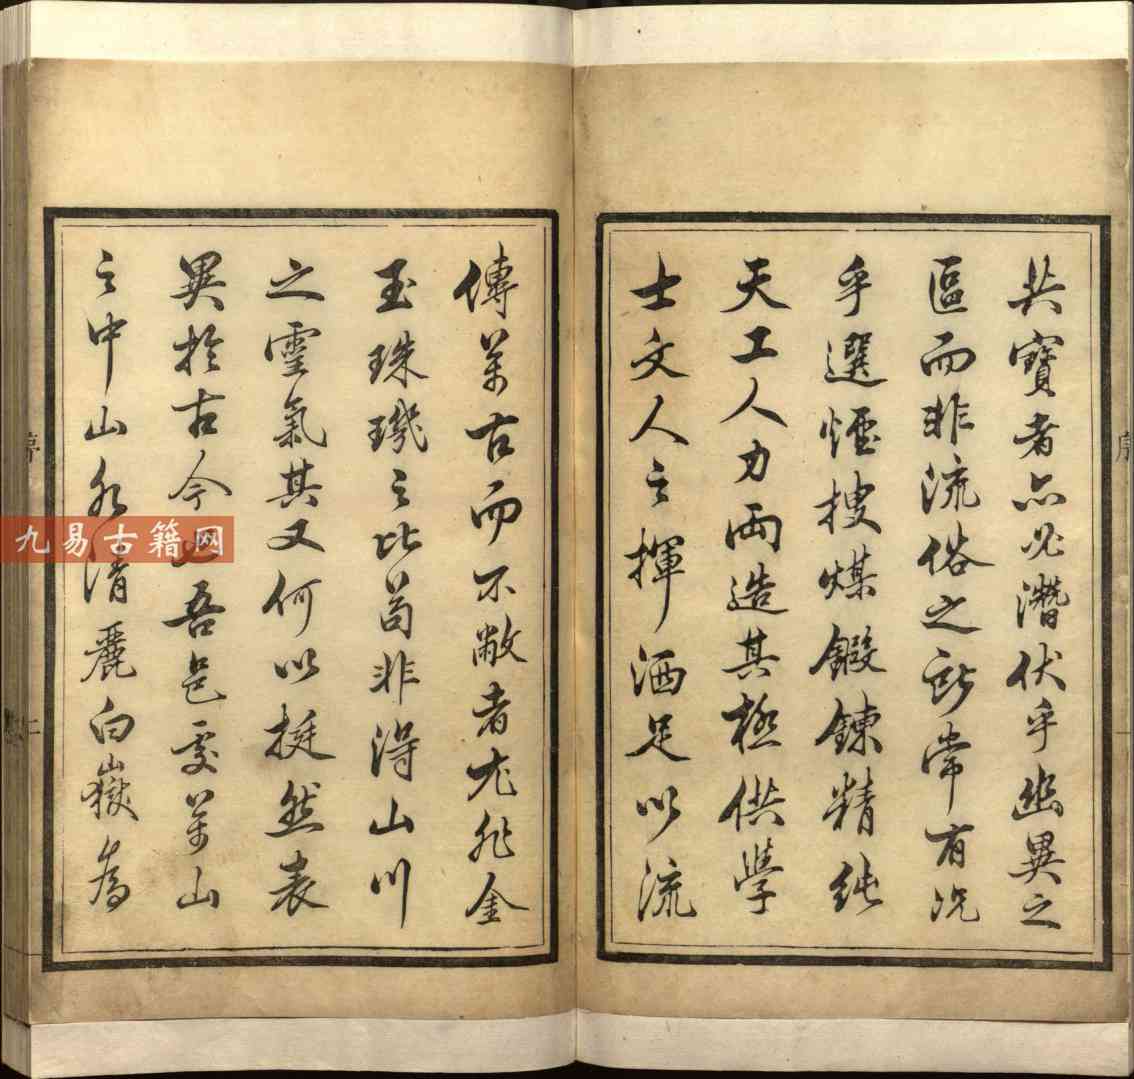 共寶者亦必潛伏乎幽異之
區而非流俗之所常有况
乎選煙搜煤鍛鍊精純
天工人力兩造其極供學
士文人之揮洒足以流
傳萬古而不敝者尤非金
玉珠璣之比苟非得山川
之靈氣其又何以挺然表
異於古今也吾邑處萬山
之中山水清麗白嶽為
序
序
二
九易古籍网